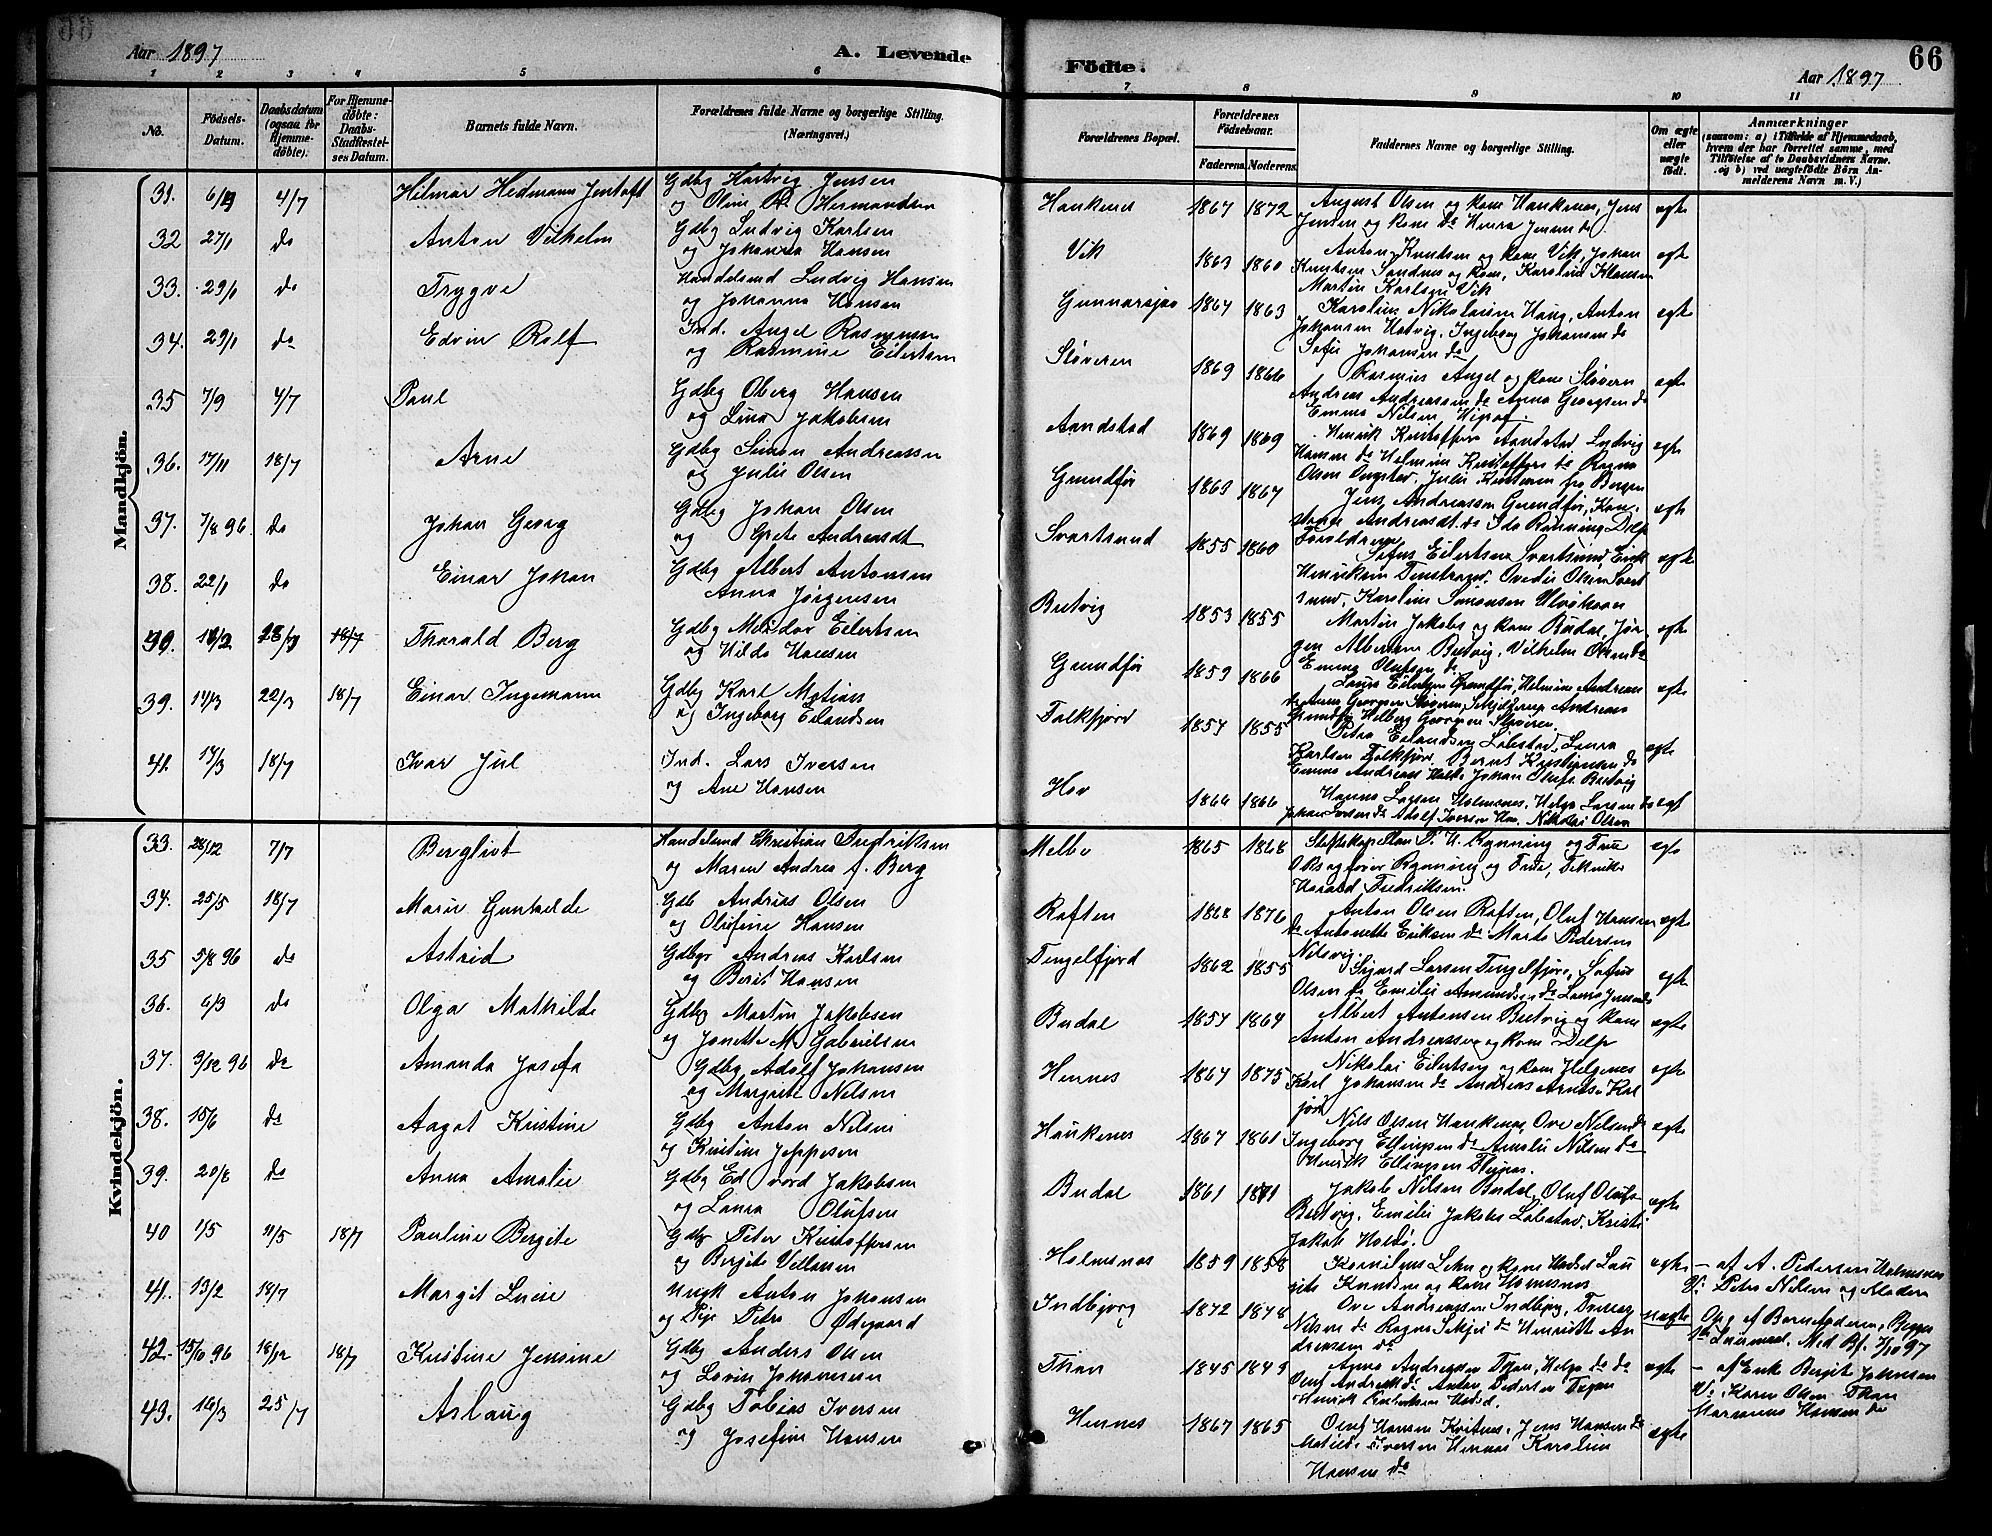 Aar 1897
A. Levende
Födte.
66
Aar 1897
1 2 3 4 5 6 7 8 9 10 11
No.
Födsels-Datum.
Daabsdatum (ogsaa for Hjemmedöbte).
For Hjemmedöbte: Daabs-Stadfæstelses Datum.
Barnets fulde Navn.
Forældrenes fulde Navne og borgerlige Stilling. (Næringsvei.)
Forældrenes Bopæl.
Forældrenes Födselsaar.
Faderens. Moderens.
Faddernes Navne og borgerlige Stilling.
Om ægte eller uægte födt.
Anmærkninger
(saasom: a) i Tilfælde af Hjemmedaab, hvem der har forrettet samme, med Tilföielse af to Daabsvidners Navne. og b) ved uægtefödte Börn Anmelderens Navn m. V.)
Mandkjön.
31. 4/7 Hilmar Hedmann Jentoft Gdbg Hartvig Jensen
og Oline Hermandsen Haukenes 1867 1872 August Olsen og kone Haukenes, Jens
Jensen og kone do ægte
32 27/1 do Anton Vilhelm Gdbg Ludvig Karlsen
og Johanna Hansen Vik 1863 1860 Anton Knudsen og kone Vik, Johan
Knutsen Sandnes og kone, Karoline Klausen
Martin Karlsen Vik ægte
33. 29/1 do Trygve Handelsmd Ludvig Hansen
og Johanna Hansen Gunnarsjaa 1867 1863 Karoline Nikolaisen Haug, Anton
Johansen Hatvig, Ingeborg Johansen do
Sofie Johansen do ægte
34. 29/1 do Edvin Rolf Ind. Angel Rasmussen
og Rasmine Eilertsen Sløveren 1869 1866 Rasmus Angel og kone Sløvern
Andreas Andreassen do Anna Georgsen do
Emma Nilsen ægte
35 7/9 4/7 Paul Gdbg Oberg Hansen
og Lina Jakobsen Aandstad 1869 1869 Henrik Kristoffers Aandstad Ludvig
Hansen do Helmine Kristoffers do Ragna
Olsen Ongstad, Julie Kristensen fra Bergen ægte
36. 17/11 18/7 Arne Gdbg Simon Andreassen
og Julie Olsen Grundfør 1863 1867 Jens Andreassen Grundfør, Kon-
stanse Andreasdt. do Ida Rønning Delp
Foreldrene ægte
37. 7/8 96 do Johan Georg Gdbg Johan Olsen
og Grete Andreasdt Svartsund 1855 1860 Sofus Eilertsen Svartsund, Erik
Henriksen Finstranes, Ovedie Olsen Svart
sund, Karoline Simonsen ægte
38. 22/1 do Einar Johan Gdbg Albert Antonsen
Anna Jørgensen Bretvig 1853 1855 Martin Jakobs og kone Budal, Jør
gen Albertsen Bretvig, Vilhelm Olsen do
Emma Olufsen do ægte
18/7 Tharald Berg Gdbg Meidor Eilertsen
og Hilda Hansen Grundfør 1859 1866 Laura Eilertsen Grundfør, Helmine Andreas
ægte
39. 14/3 22/3 18/7 Einar Ingemann Gdbg Karl Matias
og Ingeborg Eilandsen Falkfjord 1857 1855 Petra Eilandsen Løbestad, Laura
Karlsen Falkfjord, Bernt Kristiansen do
Emma Andreas Johan Olufs. Bretvig ægte
41. 14/3 18/7 Ivar Jul Ind. Lars Iversen
og Ane Hansen Hov 1866 1866 Hanna Larsen Holmenes, Helga Larsen do
Johan Larsen do Adolf Iversen Hov, Nikolai Olsen ægt
Kvindekjön.
33. 28/12 7/7 Bergliot Handelsmd Christian Fredriksen
og Maren Andrea f. Berg Melbo 1865 1868 Stiftskapellan P. H. Rynning og Frue
O.R. sagfører Rynning og Frue, Tekniker
Harald Fredriksen. ægte
34. 25/5 18/7 Marie Gunhilde Gdb Andreas Olsen
og Olufine Hansen Raften 1868 1876 Anton Olsen Raften, Oluf Hansen
do Antonette Eriksen do Marta Pedersen
Nilsvig. ægte
35 5/8 96 do Astrid Gdbgr Andreas Karlsen
og Berit Hansen Tengelfjord 1862 1855 Sigard Larsen Tengelfjord, Sofus
Olsen do Emilie Amundsen do Laura Jensen do ægte
36. 6/3 do Olga Mathilde Gdbg Martin Jakobsen
og Jonette M. Gabrielsen Budal 1857 1864 Albert Antonsen Bretvig og kone
Anton Andreassen og kone Delp ægte
37. 3/12 96 do Amanda Josefa Gdbg Adolf Johansen
og Margrete Nilsen Hennes 1867 1875 Nikolai Eilertsen og kone Helgenes
Karl Johansen do Andreas Arntsen Kal
jord ægte
38. 15/6 do Aagot Kristine Gdbg Anton Nilsen
og Kristine Jeppesen Haukenes 1867 1861 Nils Olsen Haukenes, Ove Nilsen do
Ingeborg Ellingsen do Amalie Nilsen do
Henrik Ellingsen Flesnes. ægte
39. 20/8 do Anna Amalie Gdbg Edvard Jakobsen
og Laura Olufsen Budal 1861 1871 Jakob Nilsen Budal, Oluf Olufs
Bretvig, Emilie Jakobs Løbestad, Kristi
Jakob Holdø. ægte
40 1/5 11/5 18/7 Pauline Bergite Gdbg Peter Kristoffersen
og Bergite Villassen Holmsnes 1859 1858 Kornelius Lehn og kone Hadsel Lau
rits Knudsen og kone Holmsnes ægte – af A. Pedersen Holmsnes
V: Petra Nilsen og Moderen
41. 13/2 18/7 Margit Lucie Ungk Anton Johansen
og Pige Petra Ødegaard Indbjorg 1872 1878 Ove Andreassen Indbjorg, Tomas
Nilsen do Ragna do Henriette An
dreassen do uægte Opg. af Barnefaderen, Begges
1ste Leiermaal. Med Bf. 1/10 97
42. 15/10 96 18/12 18/7 Kristine Jensine Gdbg Anders Olsen
og Lovise Johannesen Than 1845 1849 Anna Andreassen Than, Helga do do
Oluf Andreassen do Anton Pedersen
Henrik Hadsel. ægte – af Enke Bergit Johnesen
V: Karen Olsen Than
Marenus Hansen do
43. 14/3 25/7 Aslaug Gdbg Tobias Iversen
og Josefine Hansen Hennes 1867 1865 Oluf Hansen Kvitnes, Jens Hansen do
Iversen Hennes Karoline
Hansen do ægte